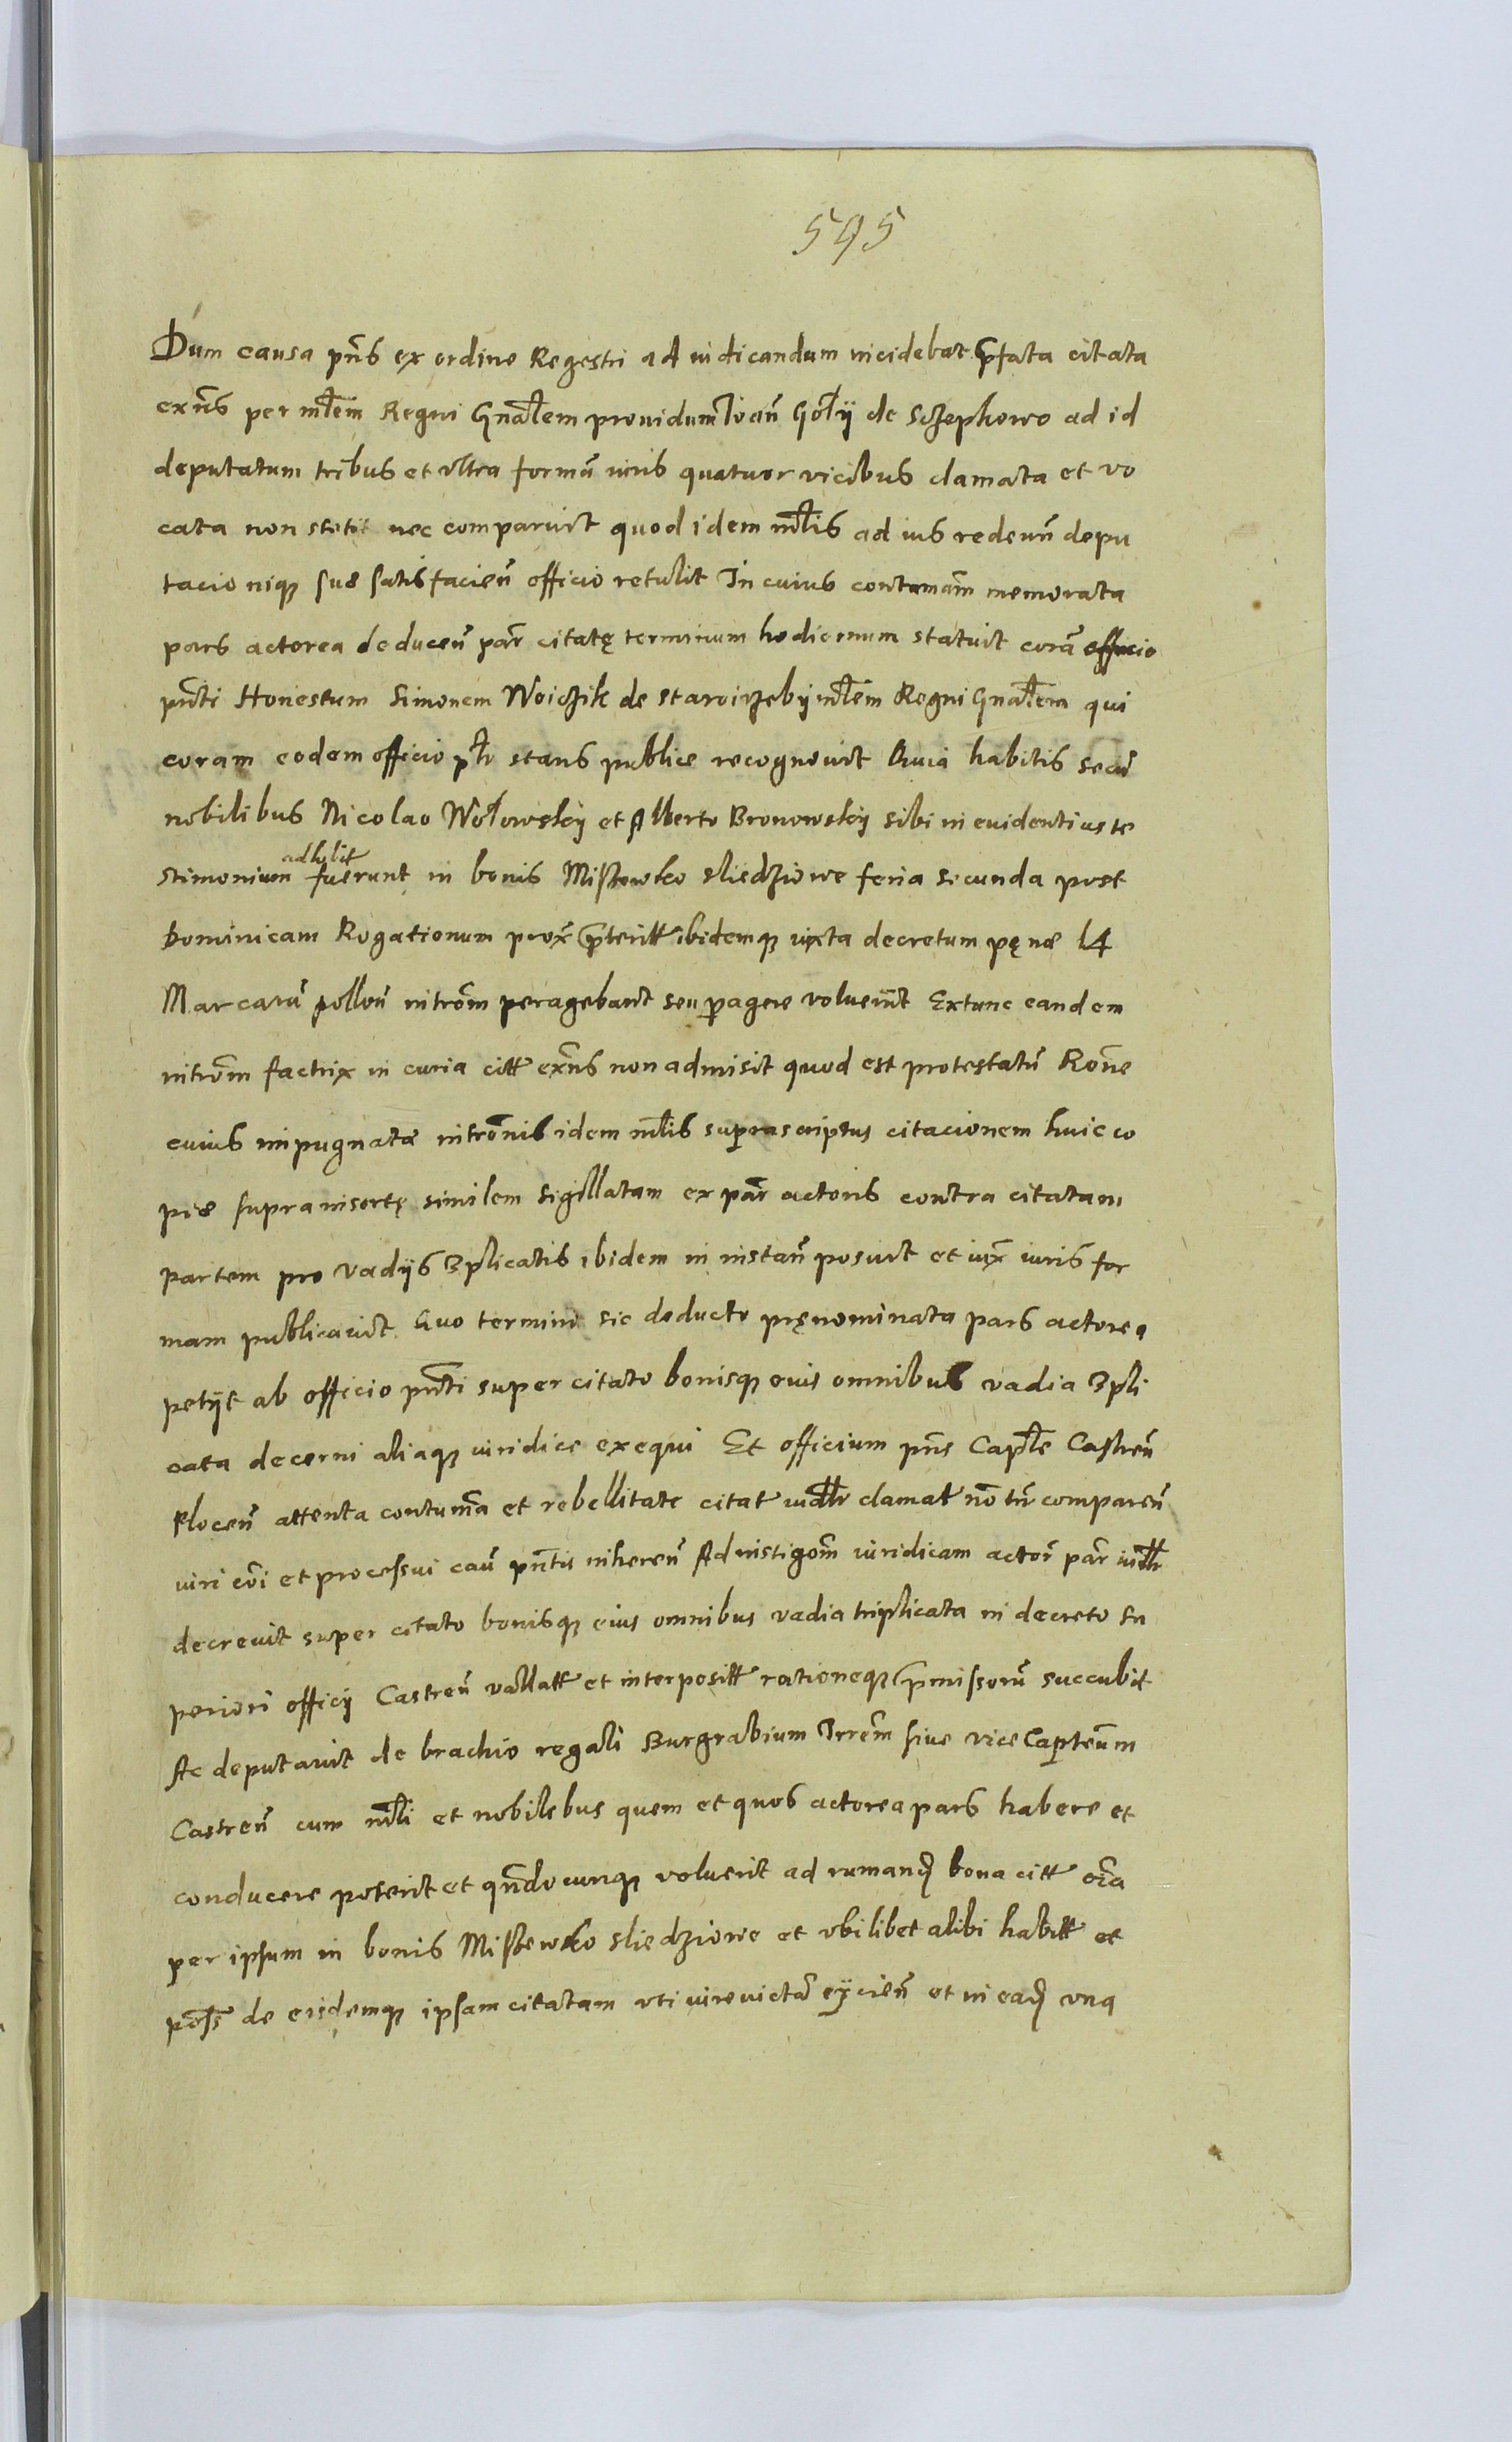 595
Dum causa pn̄s ex ordine Regestri ad iudicandum incidebat p̄fata citata
exn̄s per mlt̄em Regni Gnāłem prouidum Ioan̄ Goły de Sczepkowo ad id
deputatum tribus et vltra formā iuris quatuor vicibus clamata et vo
cata non stetit nec comparuit quod idem mlt̄is ad ius redeun̄ depu
tacioniqꝫ suæ satisfacien̄ officio retulit In cuius contumām memorata
pars actorea deducen̄ par̄ citatę terminum hodiernum statuit corā officio
pn̄ti Honestum Simonem Woiczik de Staroizeby mlt̄em Regni Gnāłem qui
coram eodem officio płr stans publice recognouit Quia habitis secū
nobilibus Nicolao Wołowsky et Alberto Bronowsky sibi in euidentius te
stimonium adhibit fuerunt in bonis Misczewko Sliedziowe feria secunda post
Dominicam Rogationum prox̄ p̄teritt ibidemqꝫ iuxta decretum pęnæ 14
Marcarū pollon̄ intrōm peragebant seu pagere voluerūt Extunc eandem
intrōm factrix in curia citt exn̄s non admisit quod est protestatū Rōne
cuius impugnatæ intrōnis idem mlt̄is suprascriptus citacionem huic co
piæ suprainsertę similem sigillatam ex par̄ actoris contra citatam
partem pro vadijs 3plicatis ibidem in instan̄ posuit et iux̄ iuris for
mam publicauit Quo termino sic deducto pręnominata pars actorea
petijt ab officio pn̄ti super citato bonisqꝫ euis omnibus vadia 3pli
cata decerni aliaqꝫ iuridice exequi Et officium pn̄s Capłe Castren̄
Plocen̄ attenta contumā et rebellitate citat iudłr clamat nō tn̄ comparen̄
iuri cōi et processui cau̅ pn̄tis inheren̄ Ad instigōm iuridicam actor̄ par̄ iudłr
decreuit super citato bonisqꝫ eius omnibus vadia triplicata in decreto su
periori officij Castren̄ vallatt et interpositt rationeqꝫ p̄missorū succubit
Ac deputauit de brachio regali Burgrabium Trrēm siue vice Capteūm
Castren̄ cum mlt̄i et nobilebus quem et quos actorea pars habere et
conducere poterit et qn̄documqꝫ voluerit ad rumand̄ bona citt oīa
per ipsum in bonis Misczewko Sliedziowe et vbilibet alibi habitt et
poss̄ de eisdemqꝫ ipsam citatam vti iure victā eÿcien̄ et in ead̄ vna